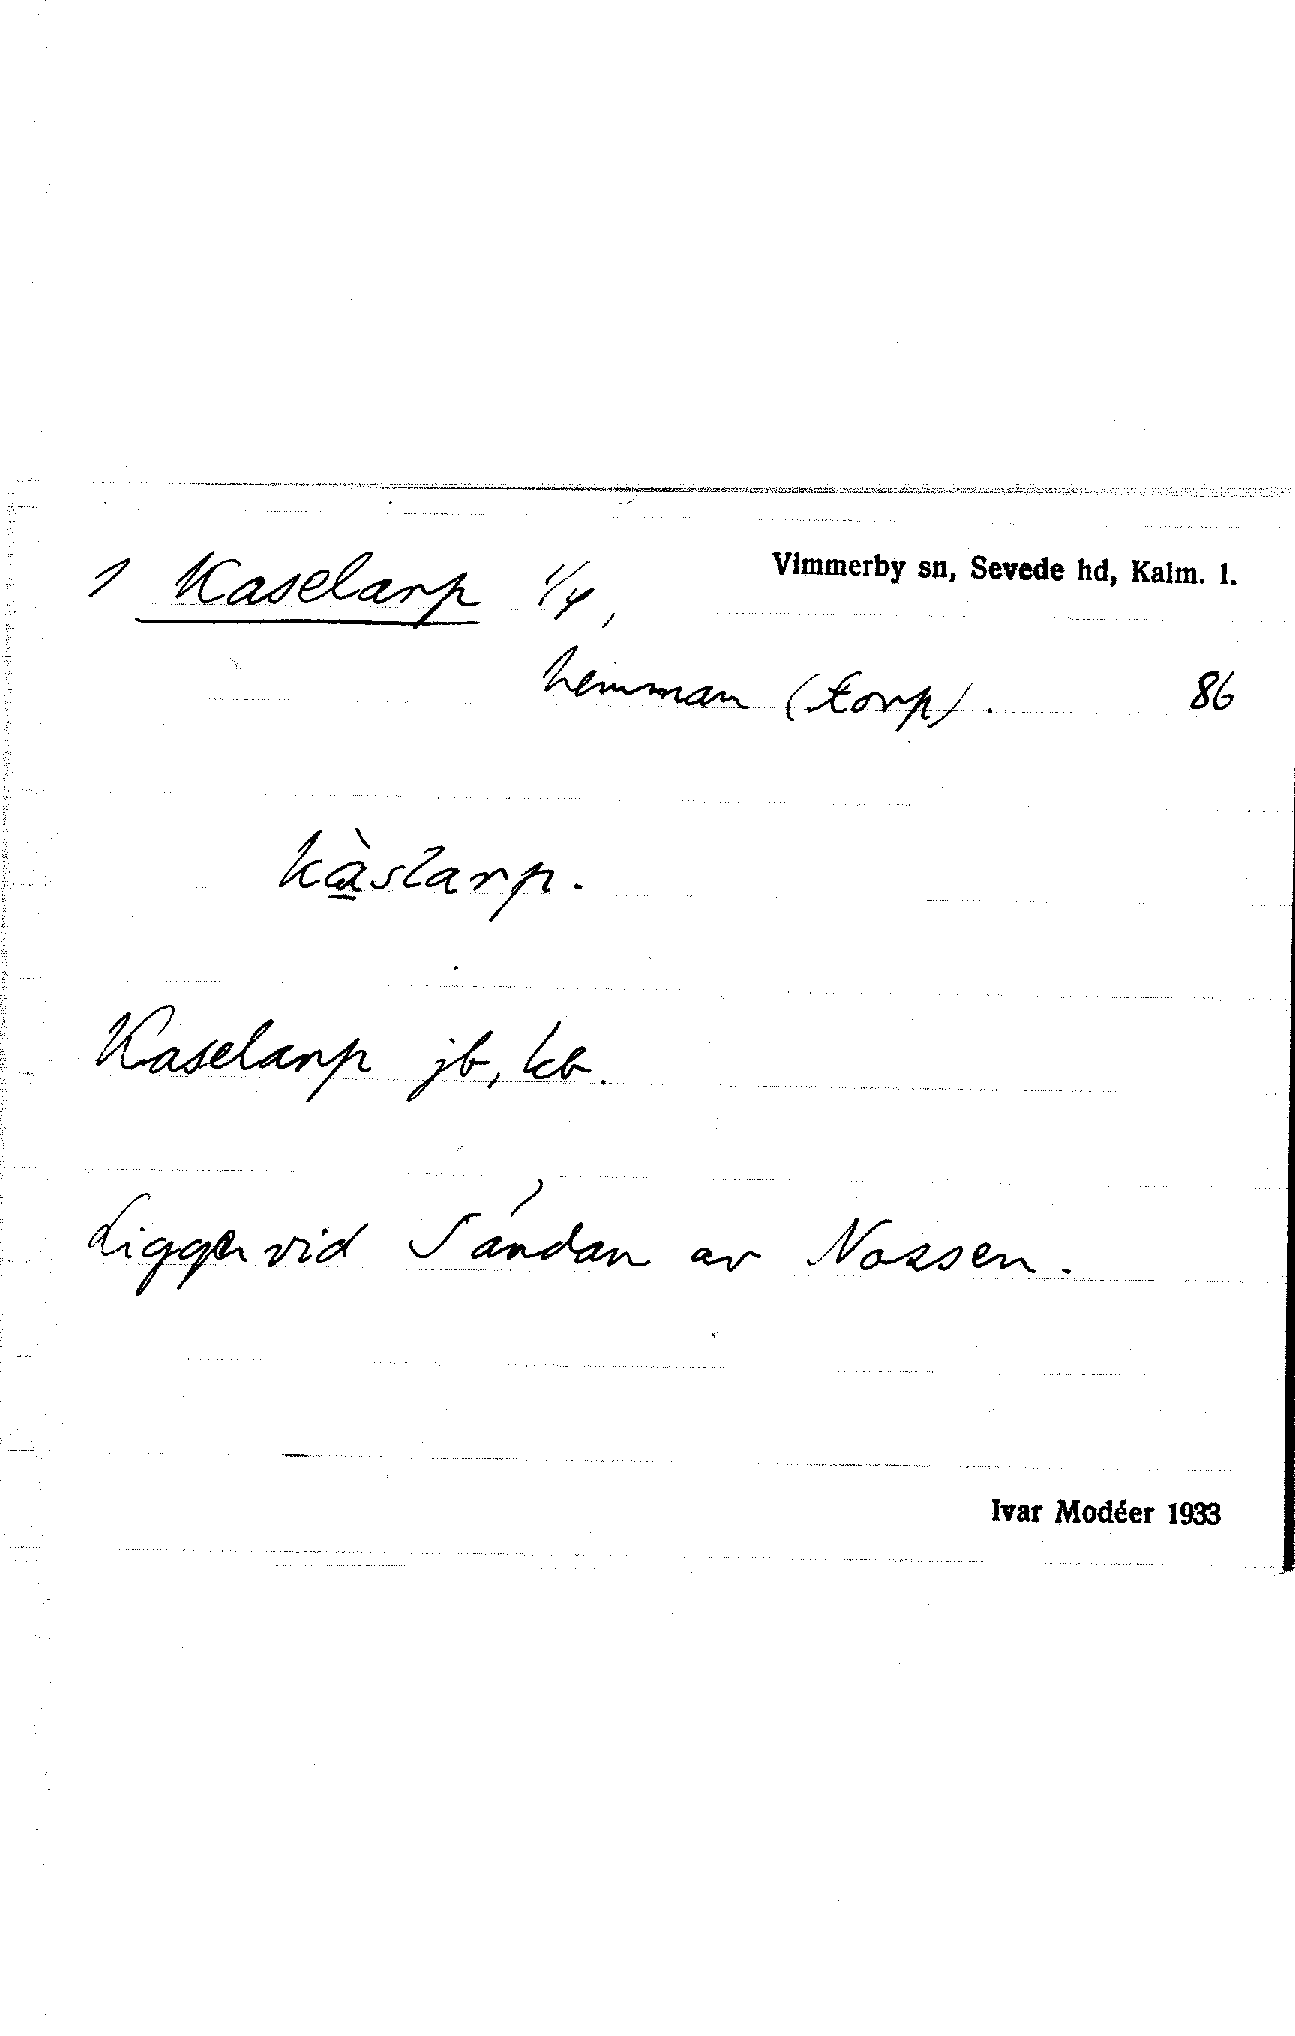 1 Kaselarp 1/4, Vimmerby sn, Sevede hd, Kalm. l.
hemman (torp). 86
Kàslarp.
Kaselarp jb, kb.
Ligger vid Sándan av Nossen.
Ivar Modéer 1933